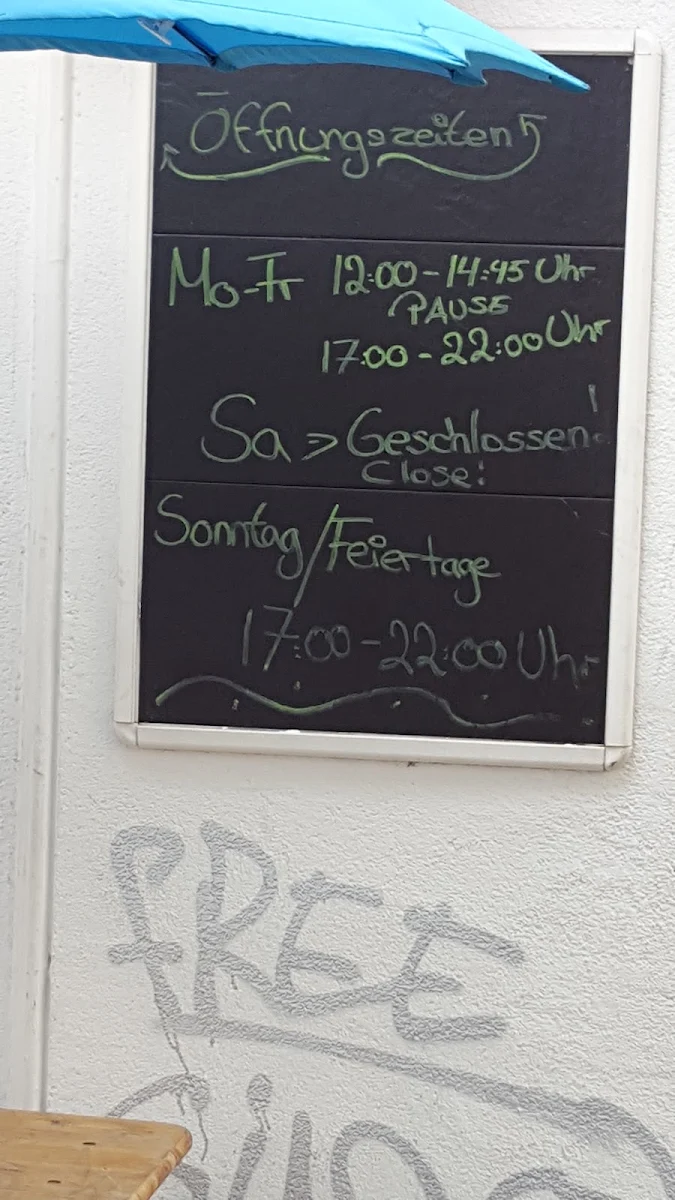 Öffnungszeiten
Mo-Fr 12:00-14:45 Uhr
PAUSE
17:00-22:00 Uhr
Sa > Geschlossen!
Close!
Sonntag/Feiertage
17:00-22:00 Uhr
FREE